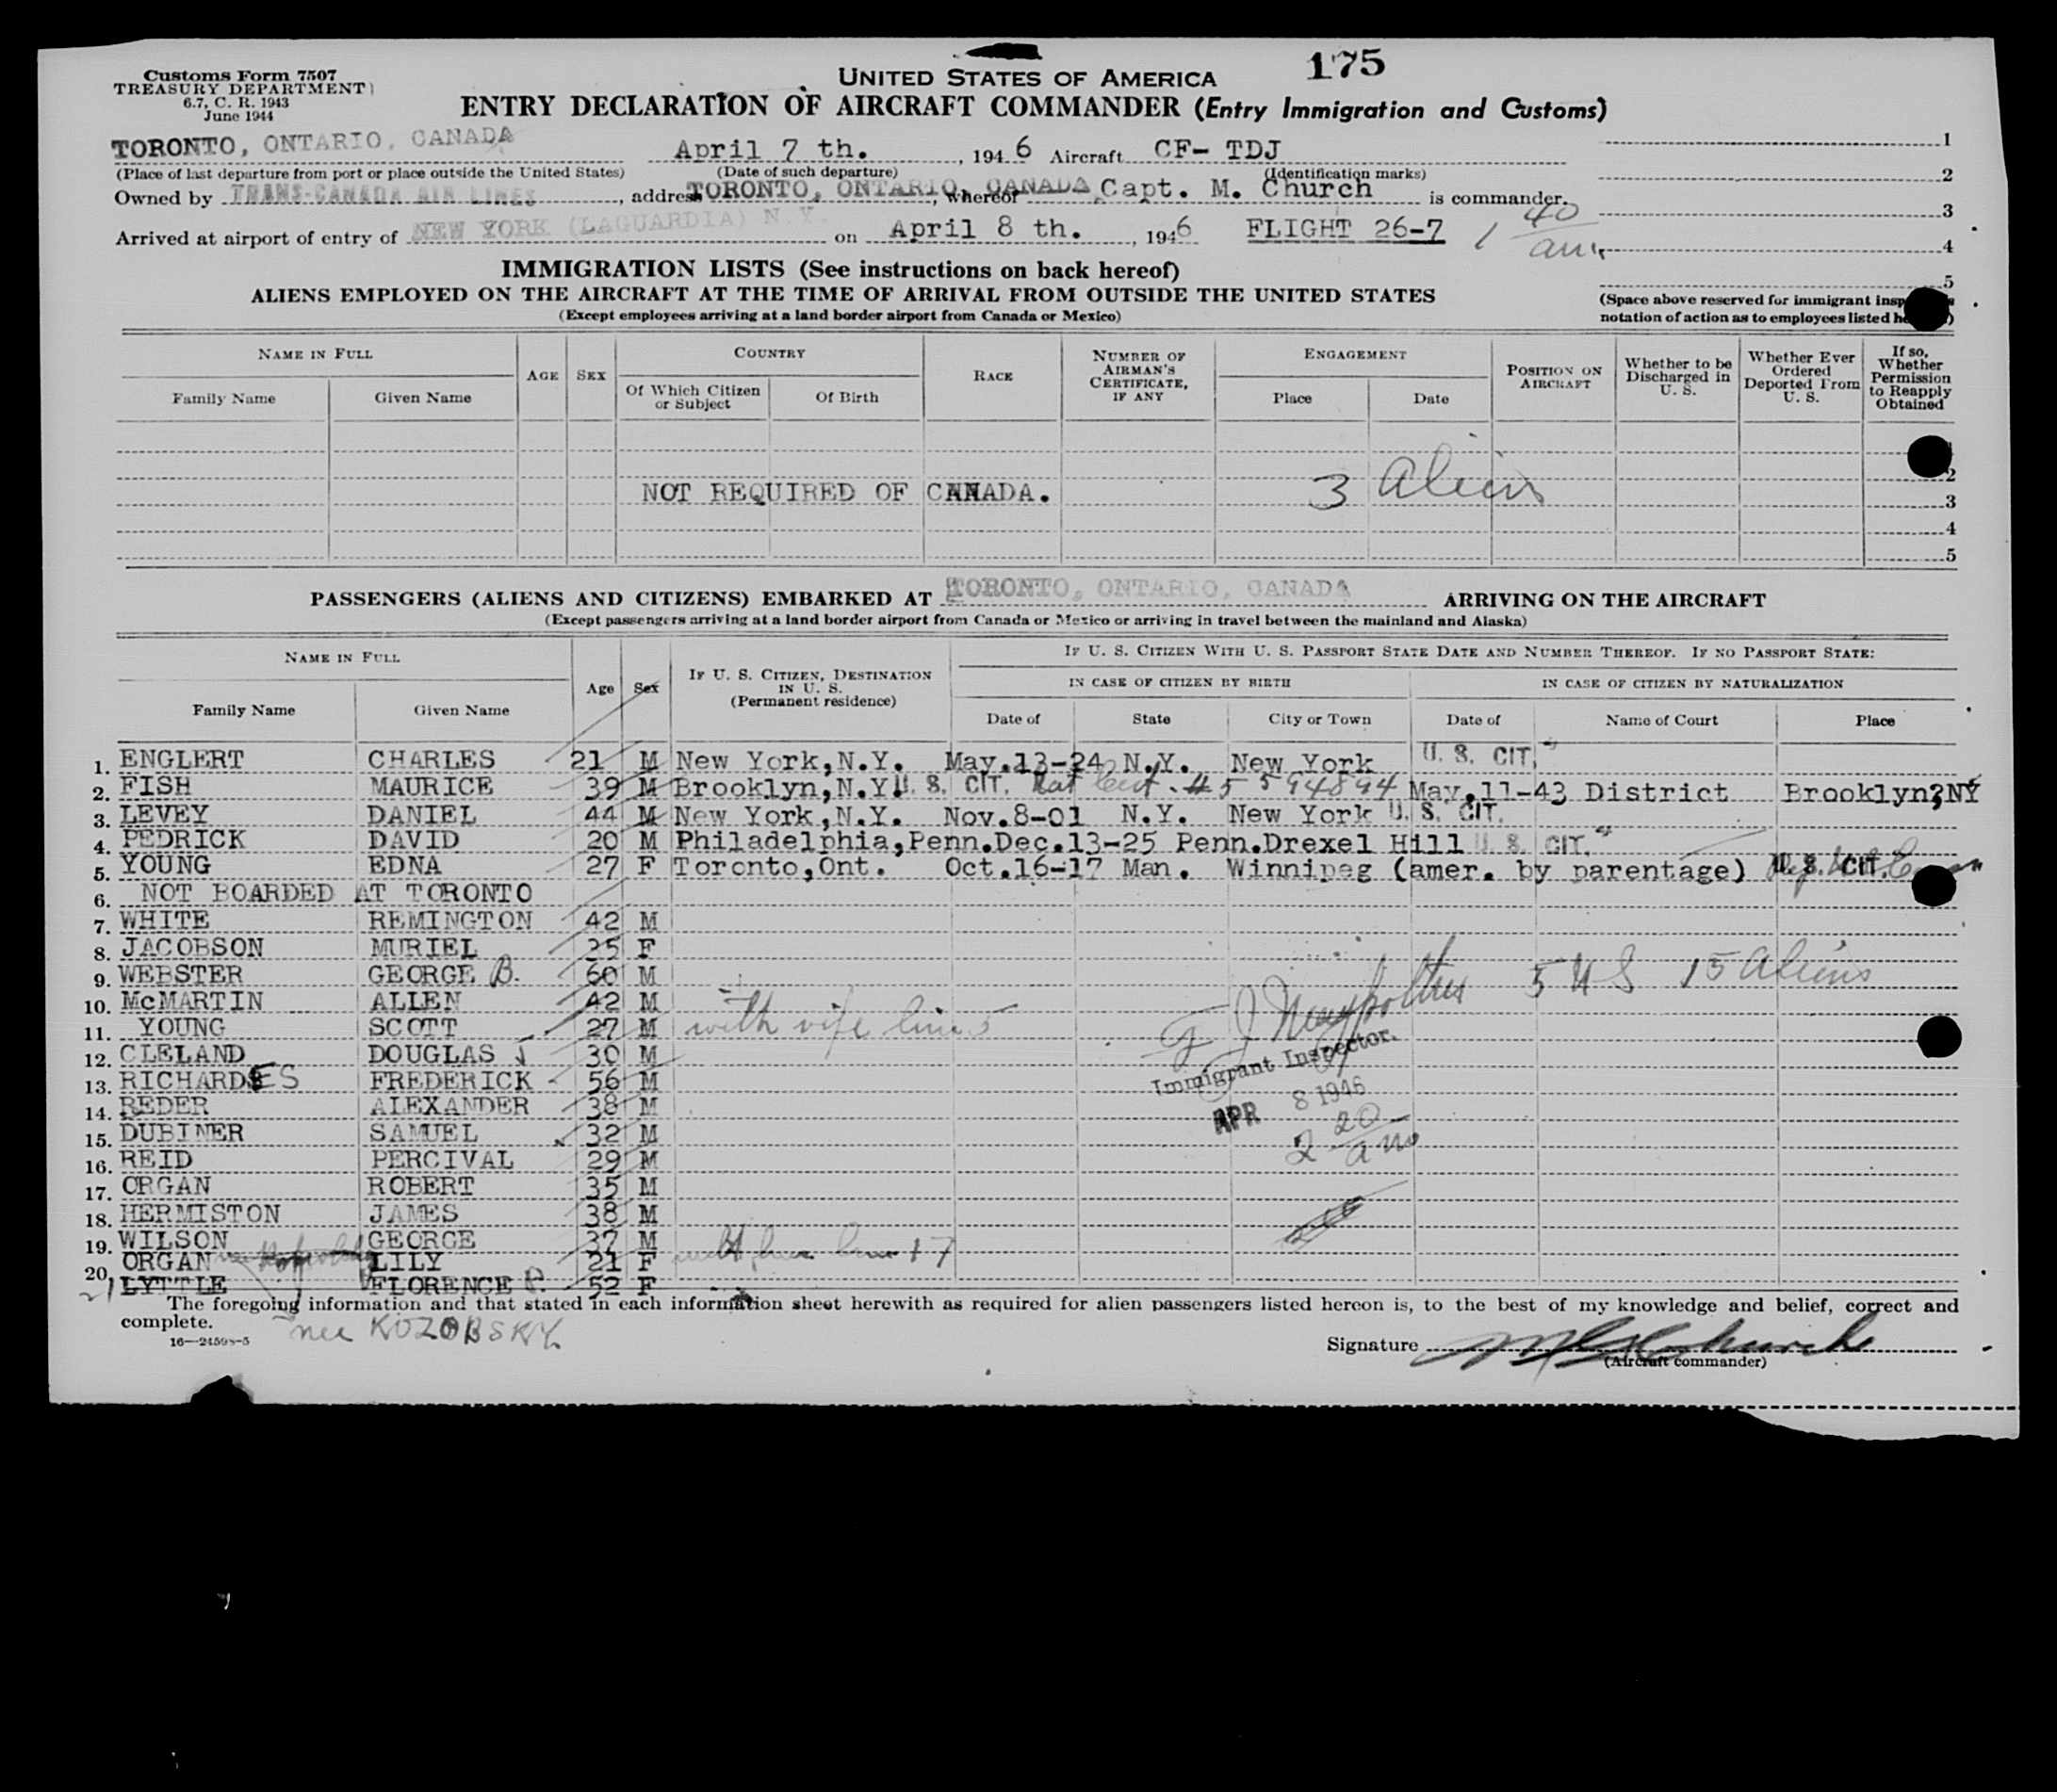 175
Customs Form 7507
TREASURY DEPARTMENT
6.7, C. R. 1943
June 1944
UNITED STATES OF AMERICA
ENTRY DECLARATION OF AIRCRAFT COMMANDER (Entry Immigration and Customs)
TORONTO, ONTARIO, CANADA April 7 th. , 1946 Aircraft CF- TDJ
(Place of last departure from port or place outside the United States) (Date of such departure) (Identification marks)
Owned by TRANS-CANADA AIR LINES , address TORONTO, ONTARIO, CANADA , whereof Capt. M. Church is commander.
Arrived at airport of entry of NEW YORK (LAGUARDIA) N.Y. on April 8 th. , 1946 FLIGHT 26-7 1 40 am
1
2
3
4
5
IMMIGRATION LISTS (See instructions on back hereof)
ALIENS EMPLOYED ON THE AIRCRAFT AT THE TIME OF ARRIVAL FROM OUTSIDE THE UNITED STATES
(Except employees arriving at a land border airport from Canada or Mexico)
(Space above reserved for immigrant
notation of action as to employees listed
NAME IN FULL
Family Name Given Name
AGE SEX
COUNTRY
Of Which Citizen or Subject Of Birth
RACE
NUMBER OF AIRMAN'S CERTIFICATE, IF ANY
ENGAGEMENT
Place Date
POSITION ON AIRCRAFT
Whether to be Discharged in U. S.
Whether Ever Ordered Deported From U. S.
If so, Whether Permission to Reapply Obtained
2
NOT REQUIRED OF CANADA. 3 Aliens 3
4
5
PASSENGERS (ALIENS AND CITIZENS) EMBARKED AT TORONTO, ONTARIO, CANADA ARRIVING ON THE AIRCRAFT
(Except passengers arriving at a land border airport from Canada or Mexico or arriving in travel between the mainland and Alaska)
NAME IN FULL
Family Name Given Name
Age Sex
IF U. S. CITIZEN, DESTINATION IN U. S.
(Permanent residence)
IF U. S. CITIZEN WITH U. S. PASSPORT STATE DATE AND NUMBER THEREOF. IF NO PASSPORT STATE:
IN CASE OF CITIZEN BY BIRTH IN CASE OF CITIZEN BY NATURALIZATION
Date of State City or Town Date of Name of Court Place
1. ENGLERT CHARLES 21 M New York,N.Y. May.13-24 N.Y. New York U. S. CIT.
2. FISH MAURICE 39 M Brooklyn,N.Y. U. S. CIT. Nat Cert. # 5594894 May.11-43 District Brooklyn,NY
3. LEVEY DANIEL 44 M New York,N.Y. Nov.8-01 N.Y. New York U. S. CIT.
4. PEDRICK DAVID 20 M Philadelphia,Penn.Dec.13-25 Penn.Drexel Hill U. S. CIT.
5. YOUNG EDNA 27 F Toronto,Ont. Oct.16-17 Man. Winnipeg (amer. by parentage) U. S. CIT.
6. NOT BOARDED AT TORONTO
7. WHITE REMINGTON 42 M
8. JACOBSON MURIEL 25 F
9. WEBSTER GEORGE B. 60 M 5 US 15 Aliens
10. McMARTIN ALLEN 42 M
11. YOUNG SCOTT 27 M with wife line 5
12. CLELAND DOUGLAS J 30 M
Immigrant Inspector.
13. RICHARDES FREDERICK 56 M
14. REDER ALEXANDER 38 M
APR 8 1946
15. DUBINER SAMUEL 32 M
2 20 am
16. REID PERCIVAL 29 M
17. ORGAN ROBERT 35 M
18. HERMISTON JAMES 38 M
19. WILSON GEORGE 37 M
20. ORGAN LILY 21 F line 17
21 LYTTLE FLORENCE P. 52 F
The foregoing information and that stated in each information sheet herewith as required for alien passengers listed hereon is, to the best of my knowledge and belief, correct and
complete.
nee KOZOBSKY
16—24598-5
Signature M Church
(Aircraft commander)